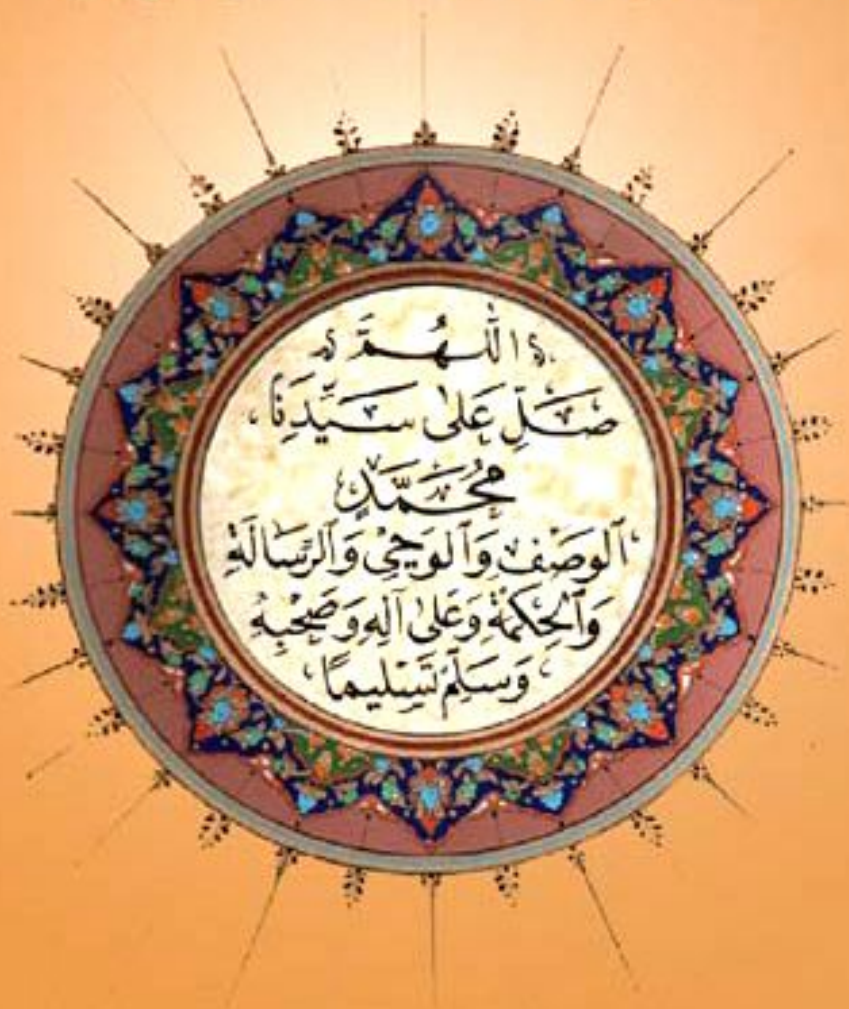 اَللّٰهُمَّ
صَلِّ عَلىٰ سَيِّدِنَا
مُحَمَّدٍ
اَلْوَصْفِ وَالْوَحْيِ وَالرِّسَالَةِ
وَالْحِكْمَةِ وَعَلىٰ آلِهِ وَصَحْبِهِ
وَسَلِّمْ تَسْلِيمًا